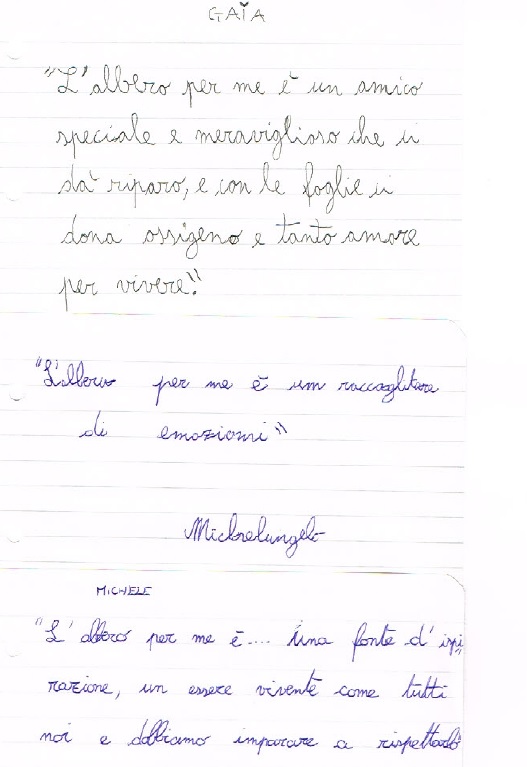 GAIA
"L'albero per me è un amico
speciale e meraviglioso che ci
dà riparo, e con le foglie ci
dona ossigeno e tanto amore
per vivere."
"L'albero per me è un raccoglitore
di emozioni"
Michelangelo
MICHELE
"L'albero per me è.... una fonte d'ispi
razione, un essere vivente come tutti
noi e dobbiamo imparare a rispettarlo"